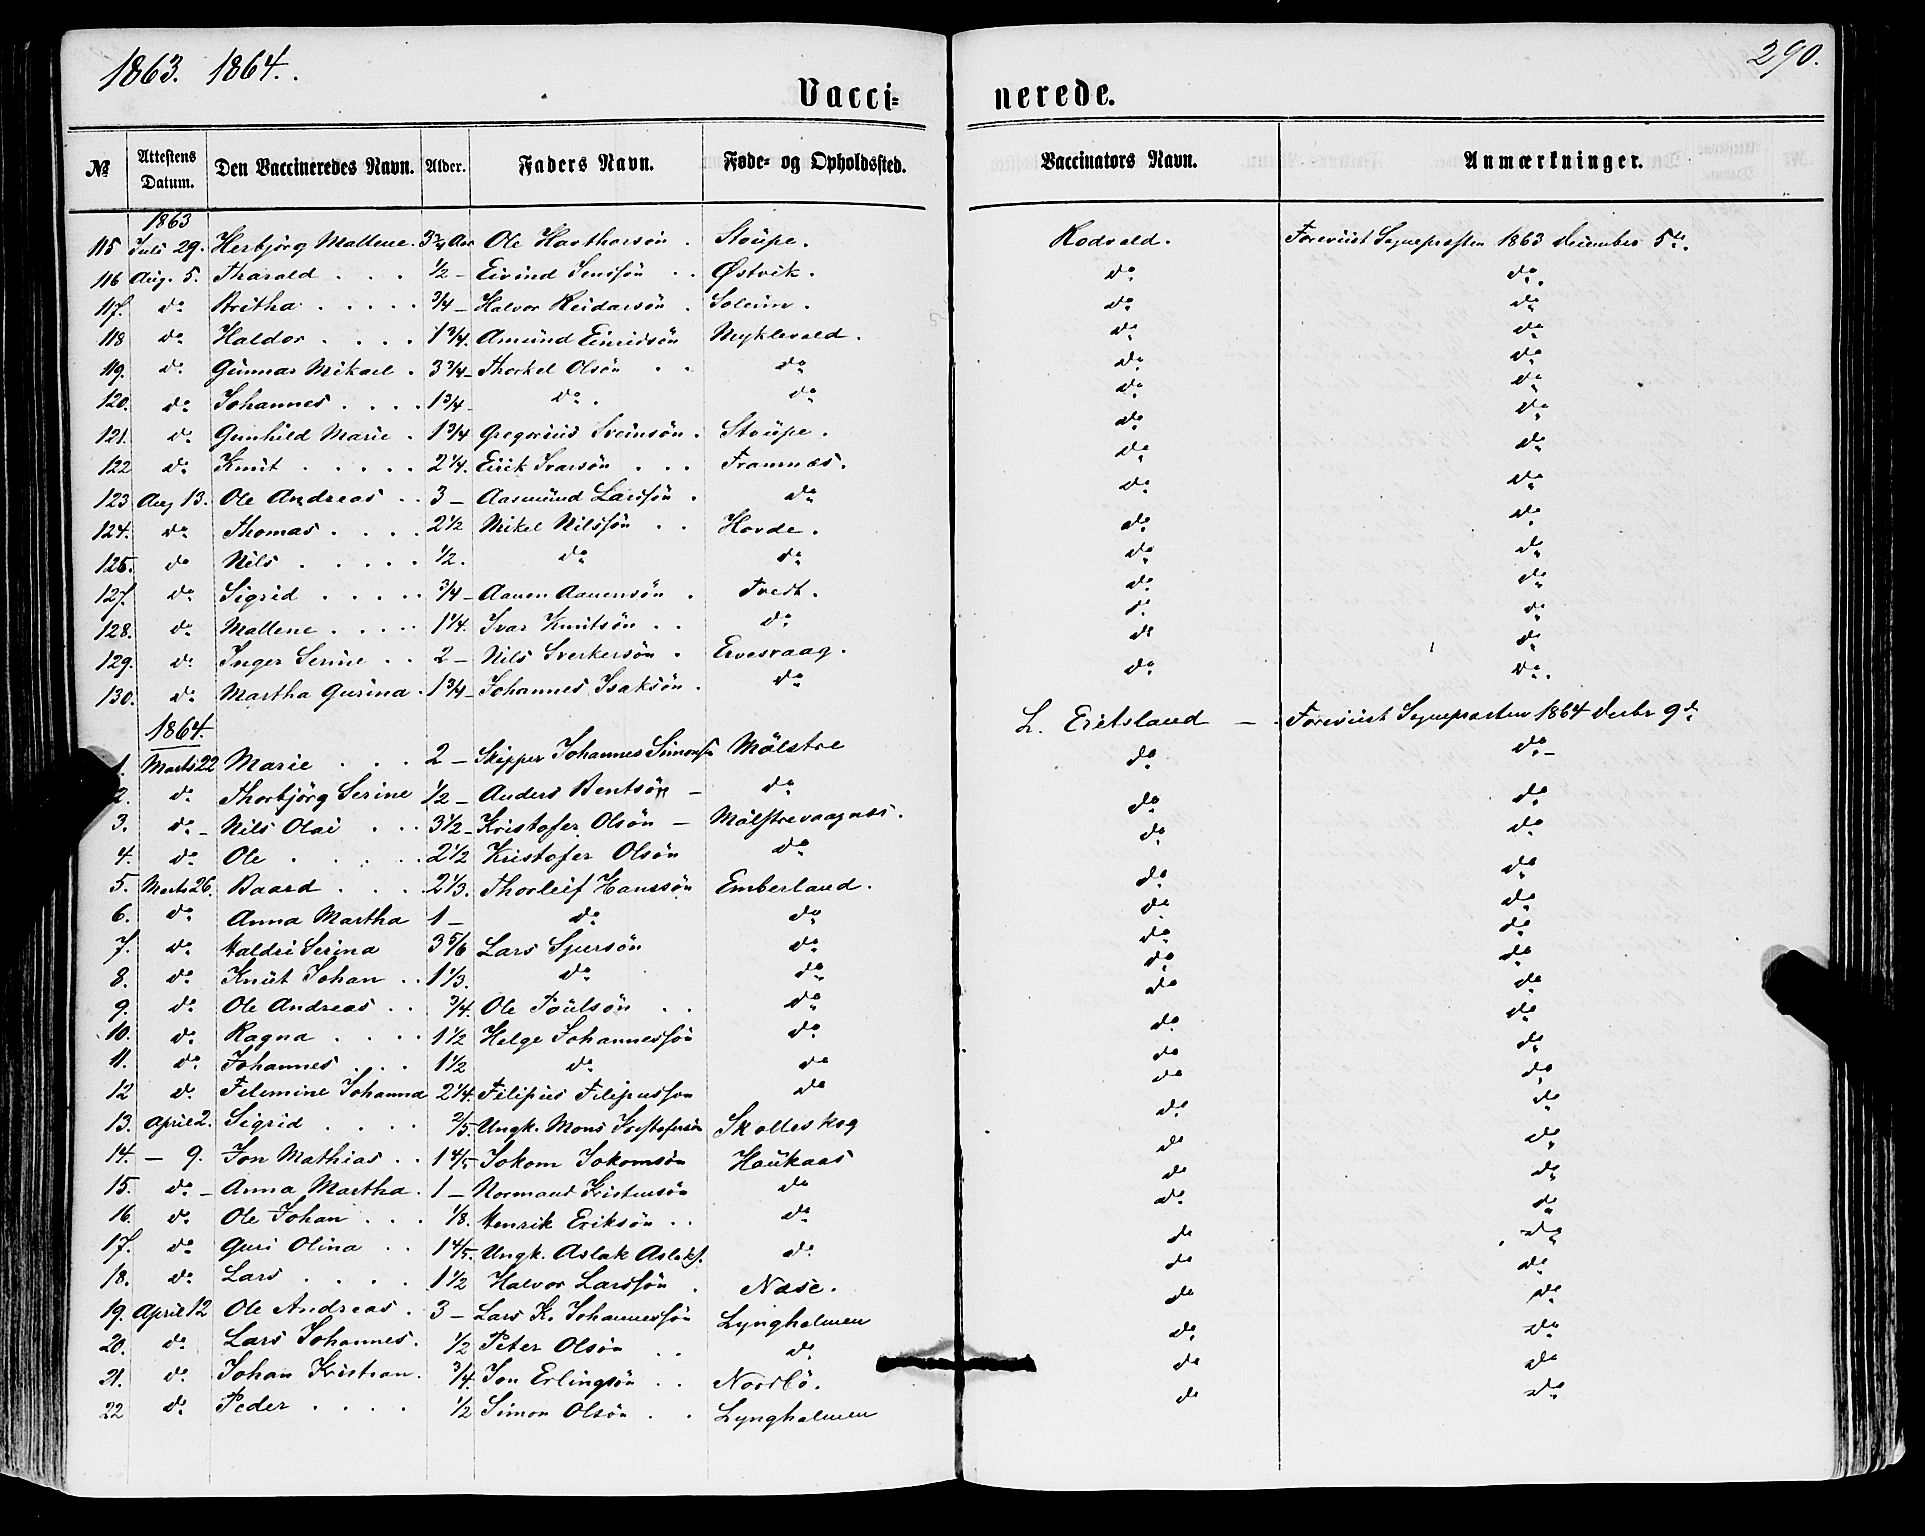 1863. 1864. 290.
Vacci= nerede.
№ Attestens Datum. Den Vaccineredes Navn. Alder. Faders Navn. Føde- og Opholdssted. Vaccinators Navn. Anmærkninger.
1863
115 Juli 29. Herbjörg Mallene. 3 3/4 Aar Ole Havthorsön. Stoŭpe. Rodvald. Foreviist Sognepresten 1863 December 5te.
116 Aug. 5. Tharald . . . 1/2 - Eivind Jenssön . . Østvik. do do.
117. do Britha . . . . . 3/4 - Halvor Reidarsön . Soleim. do do
118 do Haldor . . . . 1 3/4. Amŭnd Einridsön Myklevold. do do
119. do Gŭnnar Mikael . 3 3/4 - Thorkel Olsön . . do do do
120. do Johannes . . . . 1 3/4 - do . do do do
121. do Gunhild Marie . 1 3/4 Gregoriŭs Sveinsön. Stoŭpe. do do
122 do Knŭt . . . . . 2 1/4. Eirik Ivarsön . . . Framnæs. do do
123 Aug 13. Ole Andreas . . 3 - Aasmŭnd Larssön . do do do
124. do Thomas . . . . 2 1/2 Mikel Nilssön . . Hovde. do do
125. do Nils . . . . . 1/2. do do do do
127. do Sigrid . . . . . 3/4 - Aanen Aanensön . Tvedt. do do
128. do Mallene . . . . 1 1/4. Ivar Knŭtsön . . do do do
129. do Inger Serine . . 2 - Nils Sverkersön . Ervesvaag. do do
130. do Martha Gurina . 1 3/4 - Johannes Isaksön . do do do.
1864. L. Eritsland - Foreviist Sognepresten 1864 Decbr 9de
1. Marts 22 Marie . . . 2 - Skipper Johannes Simonsön Mölstre do do -
2. do Thorbjörg Serine 1/2 - Anders Bentsön - do do do
3. do - Nils Olai . . . 3 1/2 - Kristofer Olsön - Mölstrevaagnes. do do
4. do Ole . . . . . 2 1/2 Kristofer Olsön do do do
5. Marts 26. Baard . . . . 2 1/3. Thorleif Hanssön Emberland. do do
6. do Anna Martha 1 - do do do do
7. do Haldri Serina 3 5/6 Lars Sjursön do do do
8. do Knŭt Johan . . 1 1/3. do do do do
9. do Ole Andreas . . 3/4. Ole Poŭlsön . . do do do
10. do Ragna . . . . 1 1/2 Helge Johannessön do do do
11. do Johannes . . . 1 1/2 do do do do
12 do Filemine Johanna 2 1/4. Filipŭs Filipussön do do do
13. April 2. Sigrid . . . . 2/5. Ungk. Mons Kristofersön Skolleskog do do
14. - 9. Jon Mathias . . 1 4/5 Jokom Jokomsön Haŭkaas do do
15. do - Anna Martha . 1 - Normand Kristensön do do do
16. do Ole Johan . . . 1/8. Henrik Eriksön . . do do do
17. do Guri Olina . . 1 4/5. Ungk. Aslak Aslaks. do do do
18. do Lars . . . . 1 1/2 Halvor Larssön . Næse. do do
19. April 12 Ole Andreas . 3 - Lars K. Johannessön Lyngholmen do do
20. do Lars Johannes. 1/2 Peter Olsön . . do do do
21. do Johan Kristian. 3/4. Jon Erlingsön . . Nordlö. do do
22 do Peder . . . . 1/2 Simon Olsön . . Lyngholmen do do